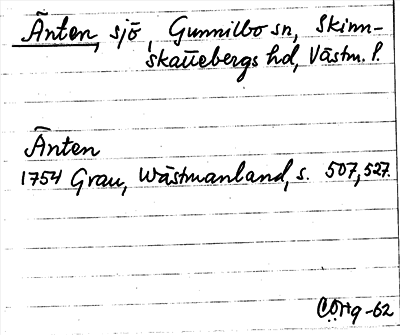 Änten, sjö, Gunnilbo sn, Skinn-
skattebergs hd, Västm. l.
Änten
1754 Grau, Wästmanland, s. 507, 527.
COrig -62